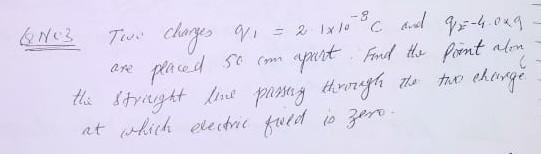 Q No3 Two charges q₁ = 2.1x10⁻⁸ C and q₂=-4.0xq
are placed 50 cm apart. Find the Point alon
the straight line passing through the two charge
at which electric field is zero.